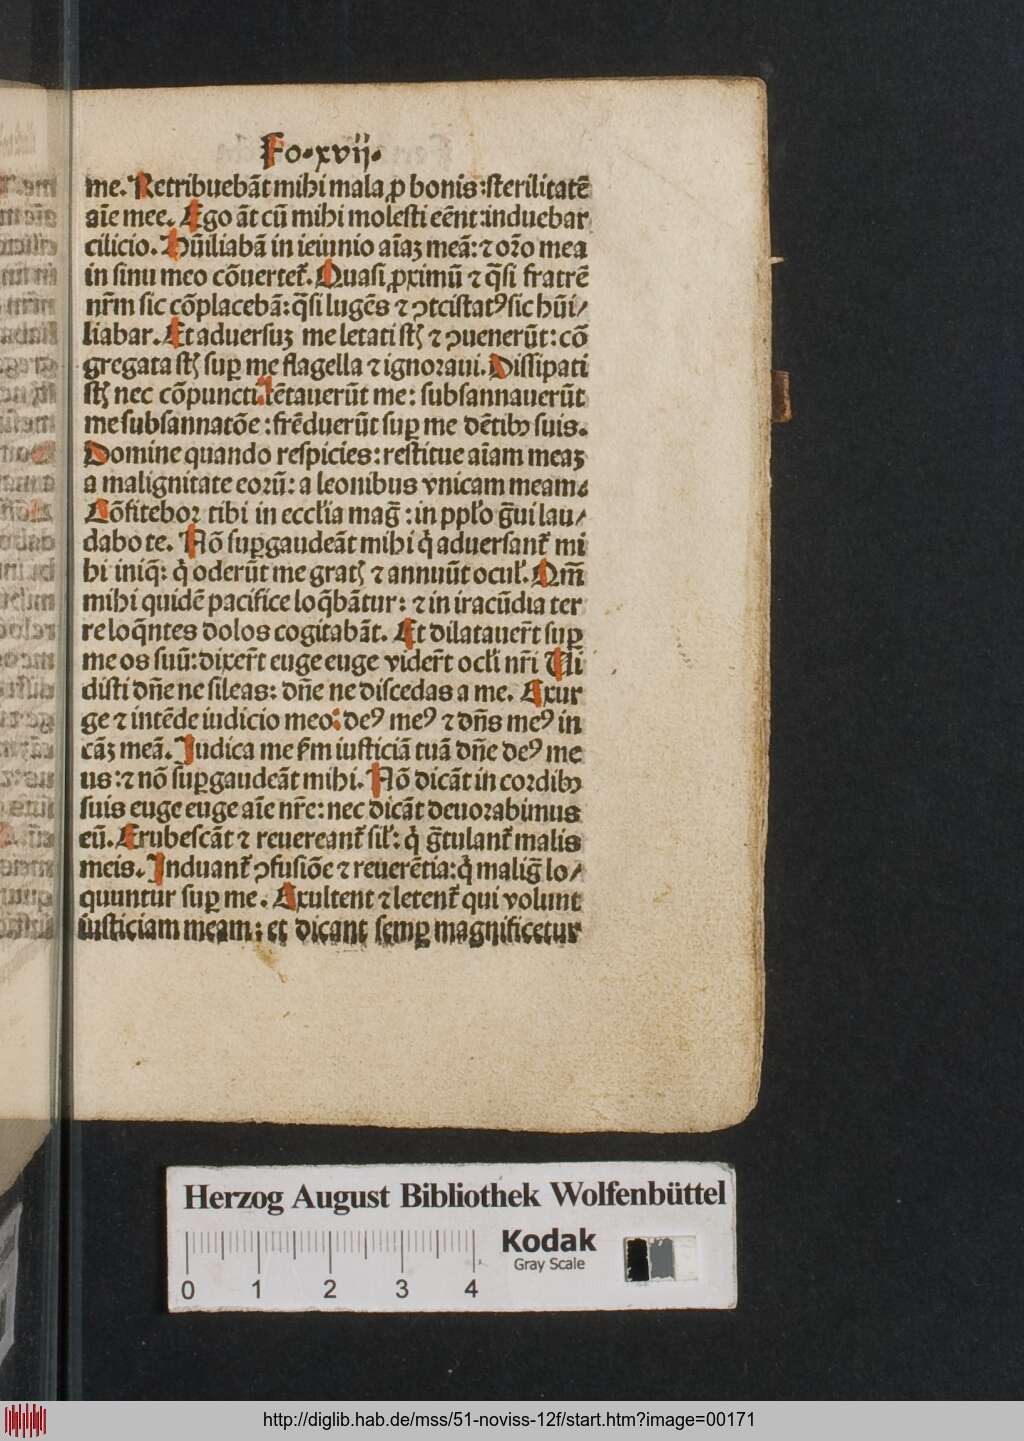 Fo.xvij.
me. Retribuebāt mihi mala ꝓ bonis: sterilitatē
aīe mee. Ego āt cū mihi molesti eēnt: induebar
cilicio. Hūiliabā in ieiunio aīaꝫ meā: ⁊ oꝛo mea
in sinu meo cōuertet᷑. Quasi ꝓximū ⁊ q̄si fratrē
nr̄m sic cōplacebā: q̄si lugēs ⁊ ꝯtcistatꝰ sic hūi/
liabar. Et aduersuꝫ me letati st᷒ ⁊ ꝯuenerūt: cō
gregata st᷒ suꝑ me flagella ⁊ ignoraui. Dissipati
st᷒ nec cōpuncti. tētauerūt me: subsannauerūt
me subsannatōe: frēduerūt suꝑ me dētibꝰ suis.
Domine quando respicies: restitue aīam meaꝫ
a malignitate eoꝛū: a leonibus vnicam meam.
Cōfiteboꝛ tibi in eccl'ia maḡ: in ppl'o ḡui lau/
dabo te. Nō suꝑgaudeāt mihi q̇ aduersant᷑ mi
hi iniq̄: q̇ oderūt me grat᷒ ⁊ annuūt ocul'. Qm̄
mihi quidē pacifice loq̄bātur: ⁊ in iracūdia ter
re loq̄ntes dolos cogitabāt. Et dilatauer̄t suꝑ
me os suū: dixer̄t euge euge vider̄t ocl'i nr̄i Ui
disti dn̄e ne sileas: dn̄e ne discedas a me. Exur
ge ⁊ intēde iudicio meo: deꝰ meꝰ ⁊ dn̄s meꝰ in
cāꝫ meā. Judica me ẜm iusticiā tuā dn̄e deꝰ me
us: ⁊ nō suꝑgaudeāt mihi. Nō dicāt in coꝛdibꝰ
suis euge euge aīe nr̄e: nec dicāt deuoꝛabimus
eū. Erubescāt ⁊ reuereant᷑ sil': q̇ ḡtulant᷑ malis
meis. Induant᷑ ꝯfusiōe ⁊ reuerētia: q̇ maliḡ lo/
quuntur suꝑ me. Exultent ⁊ letent᷑ qui volunt
iusticiam meam: et dicant semꝑ magnificetur
Herzog August Bibliothek Wolfenbüttel
Kodak
Gray Scale
0 1 2 3 4
http://diglib.hab.de/mss/51-noviss-12f/start.htm?image=00171